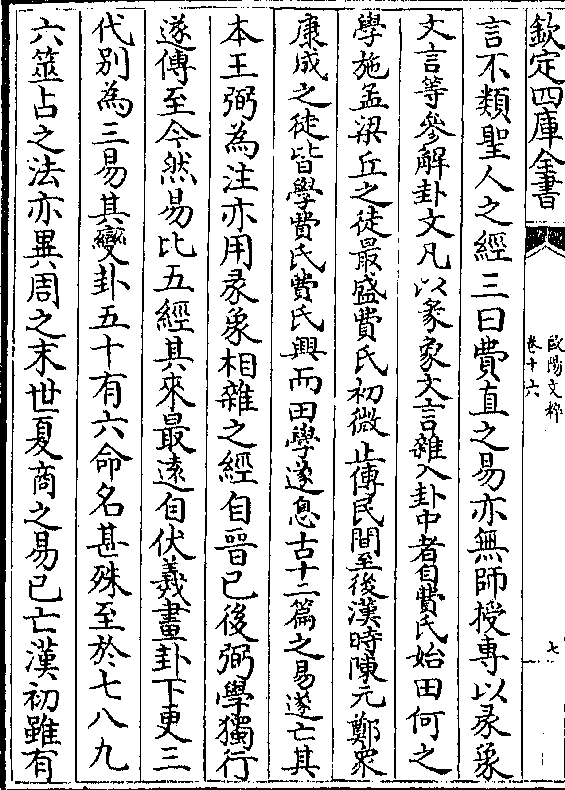 欽定四庫全書
歐陽文粹
卷十六
七
言不類聖人之經三曰費直之易亦無師授專以彖象
文言等參解卦文凡以彖象文言雜入卦中者自費氏始田何之
學施孟梁丘之徒最盛費氏初微止傳民間至後漢時陳元鄭衆
康成之徒皆學費氏費氏興而田學遂息古十二篇之易遂亡其
本王弼為注亦用彖象相雜之經自晉已後弼學獨行
遂傳至今然易比五經其來最遠自伏羲畫卦下更三
代别為三易其變卦五十有六命名甚殊至於七八九
六筮占之法亦異周之末世夏商之易已亡漢初雖有